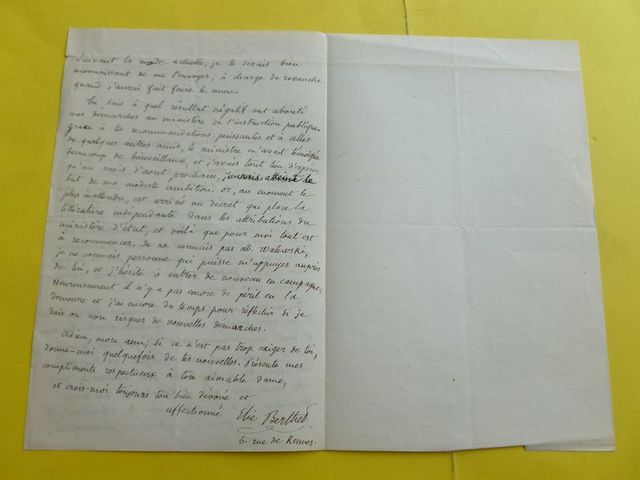 suivant la mode actuelle, je te serais bien
reconnaissant de me l'envoyer; à charge de revanche
quand j'aurai fait faire le mien.
Tu sais à quel résultat négatif ont abouti
mes démarches au ministère de l'instruction publique.
Grâce à tes recommandations puissantes et à celles
de quelques autres amis, le ministre m'avait témoigné
beaucoup de bienveillance, et j'avais tout lieu d'espérer
qu'au mois d'août prochain, j'aurais atteint le
but de ma modeste ambition. Or, au moment le
plus inattendu, est arrivé un décret qui place la
littérature indépendante dans les attributions du
ministère d'état, et voilà que pour moi tout est
à recommencer. Je ne connais pas M. Walewski,
je ne connais personne qui puisse m'appuyer auprès
de lui, et j'hésite à entrer de nouveau en campagne.
Heureusement il n'y a pas encore de péril en la
demeure et j'ai encore du temps pour réfléchir si je
dois ou non risquer de nouvelles démarches.
Adieu, mon ami; si ce n'est pas trop exiger de toi,
donne-moi quelquefois de tes nouvelles. Présente mes
compliments respectueux à ton aimable dame,
et crois-moi toujours ton bien dévoué et
affectionné Elie Berthet
6. rue de Rennes.